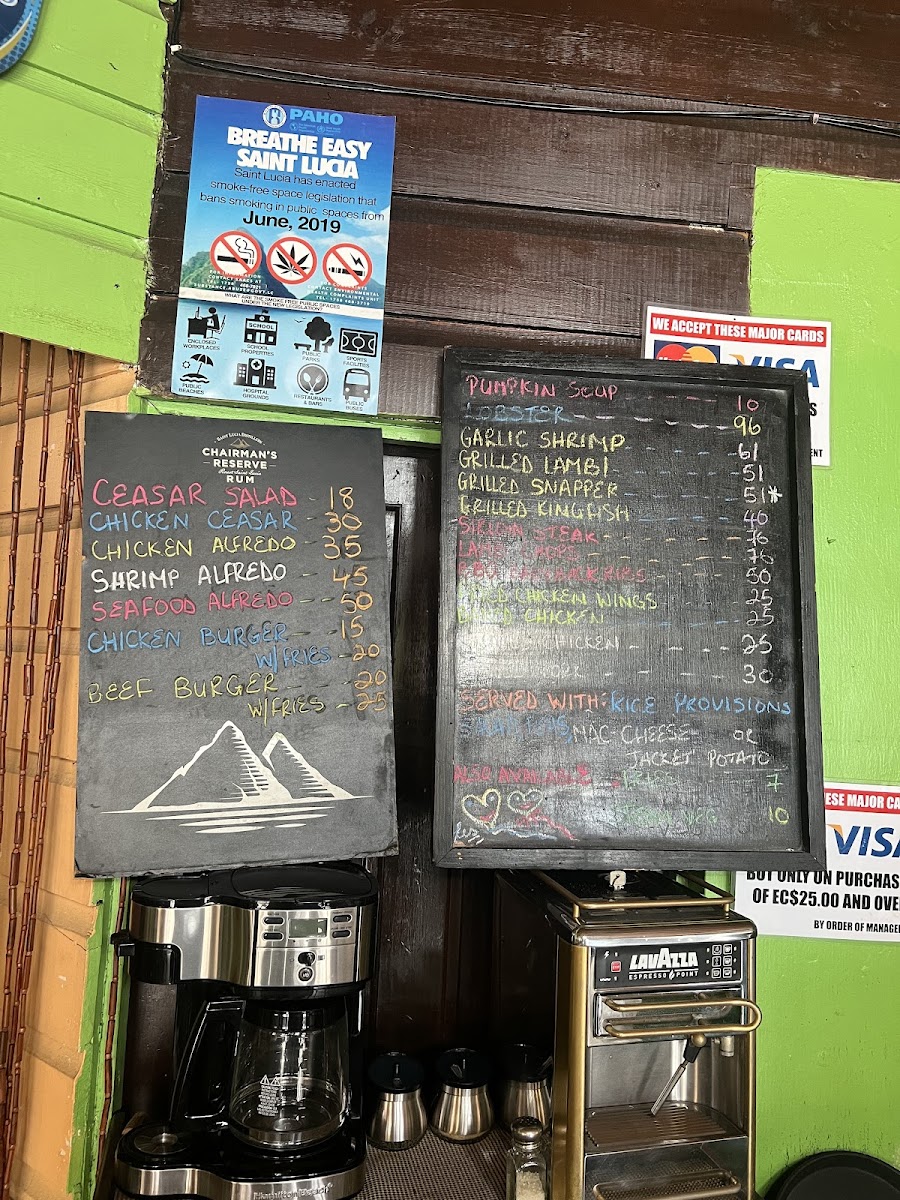 PAHO
BREATHE EASY
SAINT LUCIA
Saint Lucia has enacted
smoke-free space legislation that
bans smoking in public spaces from
June, 2019
FOR INFORMATION
CONTACT
TEL: 1758
HEALTH COMPLAINTS UNIT
WHAT ARE THE SMOKE FREE PUBLIC SPACES
UNDER THE NEW LEGISLATION?
ENCLOSED
WORKPLACES
SCHOOL
SCHOOL
PROPERTIES
PUBLIC
PARKS
SPORTS
FACILITIES
PUBLIC
BEACHES
HOSPITAL
GROUNDS
RESTAURANTS
& BARS
PUBLIC
BUSES
WE ACCEPT THESE MAJOR CARDS
VISA
CHAIRMAN'S
RESERVE
RUM
CEASAR SALAD - 18
CHICKEN CEASAR - 30
CHICKEN ALFREDO - 35
SHRIMP ALFREDO - 45
SEAFOOD ALFREDO - 50
CHICKEN BURGER - 15
W/FRIES - 20
BEEF BURGER - 20
W/FRIES - 25
PUMPKIN SOUP - 10
LOBSTER - 96
GARLIC SHRIMP - 61
GRILLED LAMBI - 51
GRILLED SNAPPER - 51*
GRILLED KINGFISH - 40
SIRLOIN STEAK - 76
LAMB CHOPS - 76
BBQ RIBS - 50
CHICKEN WINGS - 25
CHICKEN - 25
CHICKEN - 25
30
SERVED WITH: RICE PROVISIONS
MAC-CHEESE OR
JACKET POTATO
ALSO AVAILABLE - 7
10
ESE MAJOR CA
VISA
BUT ONLY ON PURCHAS
OF EC$25.00 AND OVE
BY ORDER OF MANAGE
LAVAZZA
ESPRESSO POINT
Hamilton Beach